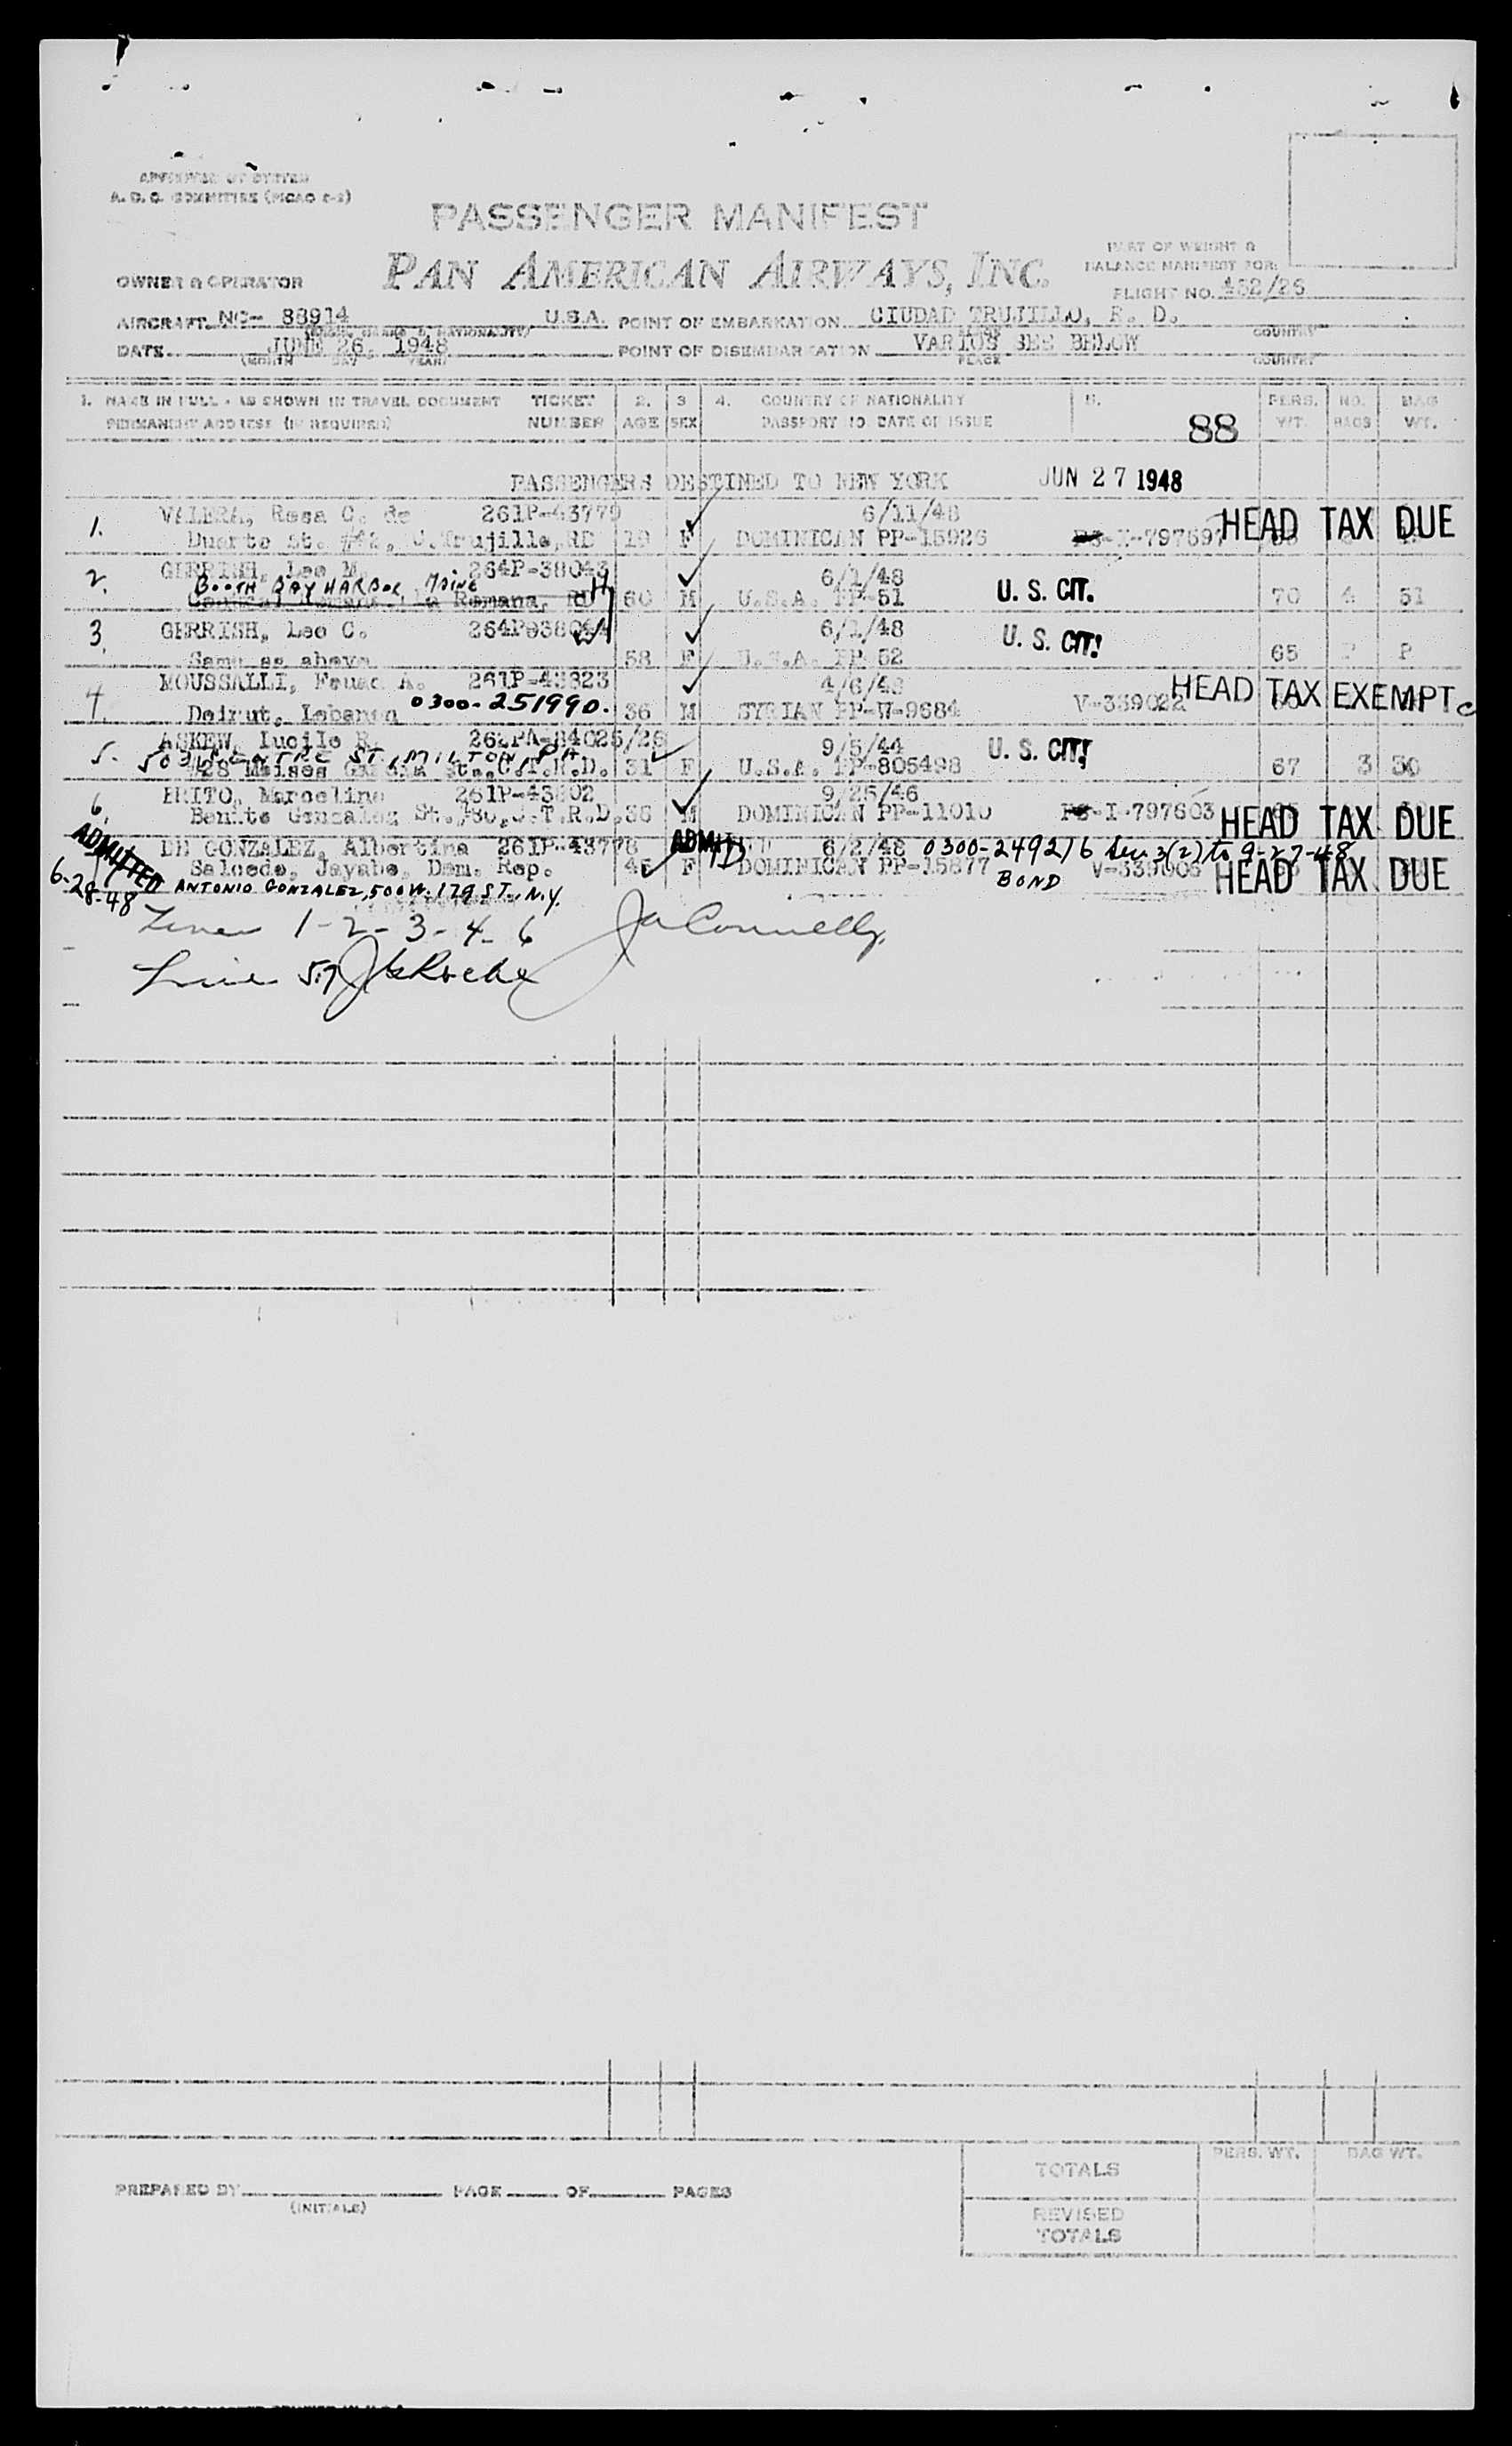 A. D. C. COMMITTEE
PASSENGER MANIFEST
PAN AMERICAN AIRWAYS, INC.
PART OF WEIGHT &
BALANCE MANIFEST FOR:
OWNER & OPERATOR
FLIGHT NO. 432/26
AIRCRAFT NC- 88914 U.S.A. POINT OF EMBARKATION CIUDAD TRUJILLO, R. D.
PLACE COUNTRY
DATE JUNE 26, 1948 POINT OF DISEMBARKATION VARIOS SEE BELOW
(MONTH DAY YEAR) PLACE COUNTRY
1. NAME IN FULL - AS SHOWN IN TRAVEL DOCUMENT TICKET 2. 3 4. COUNTRY OF NATIONALITY 5. PERS. NO. BAG
PERMANENT ADDRESS (IF REQUIRED) NUMBER AGE SEX PASSPORT NO. DATE OF ISSUE 88 WT. BAGS WT.
PASSENGERS DESTINED TO NEW YORK JUN 27 1948
1. VALERA, Rosa C. de 261P-43779 6/11/48
Duarte St. #42, C.Trujillo, RD 19 F DOMINICAN PP-15926 HEAD TAX DUE
2. GERRISH, Leo M. 264P-38043 6/1/48
BOOTH BAY HARBOR, MAINE
La Romana, RD 60 M U.S.A. PP-51 U. S. CIT. 70 4 51
3. GERRISH, Leo C. 6/1/48 U. S. CIT.
Same as above 58 F U.S.A. PP 52 65 P P
4. MOUSSALLI, Fouad A. 261P-43823 4/6/48
Beirut, Lebanon 0300-251990. 36 M SYRIAN PP-W-9684 V-339022 HEAD TAX EXEMPT
5. ASKEW, Lucile R. 9/5/44 U. S. CIT.
503 CENTRE ST., MILTON, PA
#28 Moises Garcia St., C.T.R.D. 31 F U.S.A. PP-805498 67 3 30
6. BRITO, Marcelino 9/25/46
Benito Gonzalez St. 36 M DOMINICAN PP-11010 I-797603 HEAD TAX DUE
DE GONZALEZ, Albertina 261P-43778 ADMITTED 6/2/48 0300-249216 Sec 3(2) to 9-27-48
Salcedo, Jayabo, Dom. Rep. 45 F DOMINICAN PP-15877 BOND HEAD TAX DUE
ADMITTED
6-28-48 ANTONIO GONZALEZ, 500 W. 179 ST., N.Y.
Lines 1-2-3-4-6 Connelly
Line 5-7
PREPARED BY PAGE OF PAGES
(INITIALS)
PERS. WT. BAG WT.
TOTALS
REVISED
TOTALS